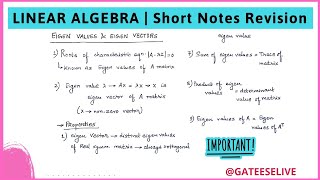 LINEAR ALGEBRA | Short Notes Revision
EIGEN VALUES & EIGEN VECTORS
1) Roots of characteristic eqn |A-λI|=0
↳ Known as Eigen values of A matrix
2) Eigen value λ → Ax = λx → x is
eigen vector of A matrix
(x → non-zero vector)
→ Properties
1) eigen vector → distinct eigen values
of Real symm. matrix → always orthogonal
eigen value
7) Sum of eigen values = Trace of
matrix
8) Product of eigen
values = determinant
value of matrix
9) Eigen values of A = Eigen
values of Aᵀ
IMPORTANT!
@GATEESELIVE